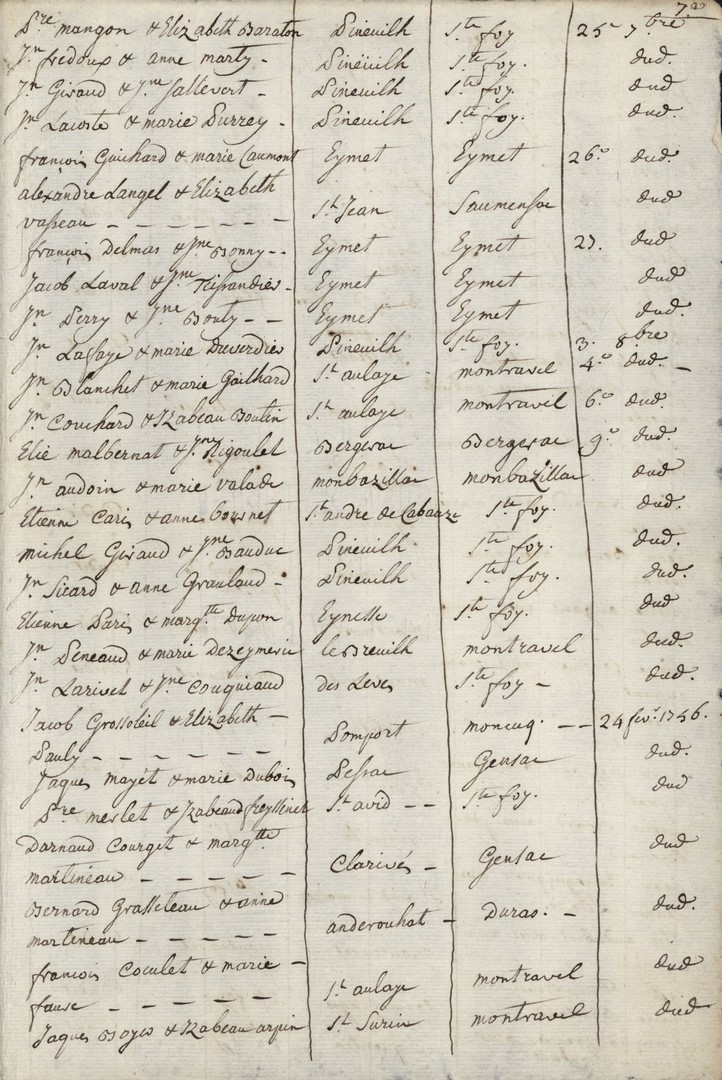 7.e
Pre mangon & Elizabeth Baraton Pineuilh Ste foy 25e 7bre
Jn fredoux & anne marty - Pineuilh Ste foy. dud.
Jn Giraud & Jne Sallevert - Pineuilh Ste foy. dud
Jn Lacoste & marie Durrey - Pineuilh Ste foy. dud.
françois Guichard & marie Caumont Eymet Eymet 26.o dud.
alexandre Langel & Elizabeth
vasseau - - - - - - - St Jean Saumensac dud
françois Delmas & Jne Bonny - - Eymet Eymet 27. dud
Jacob Laval & Jne - Eymet Eymet dud
Jn Perry & Jne Bouty - - Eymet Eymet dud.
Jn Lafaye & marie Duverdier Pineuilh Ste foy. 3. 8bre
Jn Blanchet & marie Gailhard St aulaye montravel 4.o dud. -
Jn Couchard & Izabeau Boutin St aulaye montravel 6.o dud.
Elie malbernat & Jne Rigoulet Bergerac Bergerac 9.o dud.
Jn audoin & marie valade monbazillac monbazillac dud
Etienne Caris & anne Bournet St andre de Cabauze Ste foy. dud.
michel Giraud & Jne Bauduc Pineuilh Ste foy. dud.
Jn Sicard & anne Graulaud - Pineuilh Ste foy. dud.
Etienne Paris & margtte Dupon Eynesse Ste foy. dud
Jn Peneaud & marie Dezeymerie le Breuilh montravel dud.
Jn Larivet & Jne Couguiaud des Leves Ste foy - dud.
Jacob Grossoleil & Elizabeth -
Pauly - - - - - - - Pomport moncuq. - - 24 fevr. 1756.
Jaques mayet & marie Dubois Pessac Gensac dud.
Pre merlet & Izabeau freyssinet St avid - - Ste foy. dud
Darnaud Courget & margtte
martineau - - - - - Clarivés - Gensac dud
Bernard Grasseteau & anne
martineau - - - - - anderouhat - Duras. - dud.
françois Coculet & marie -
faure - - - - - St aulaye montravel dud
Jaques Boyer & Izabeau arpin St Surin montravel dud